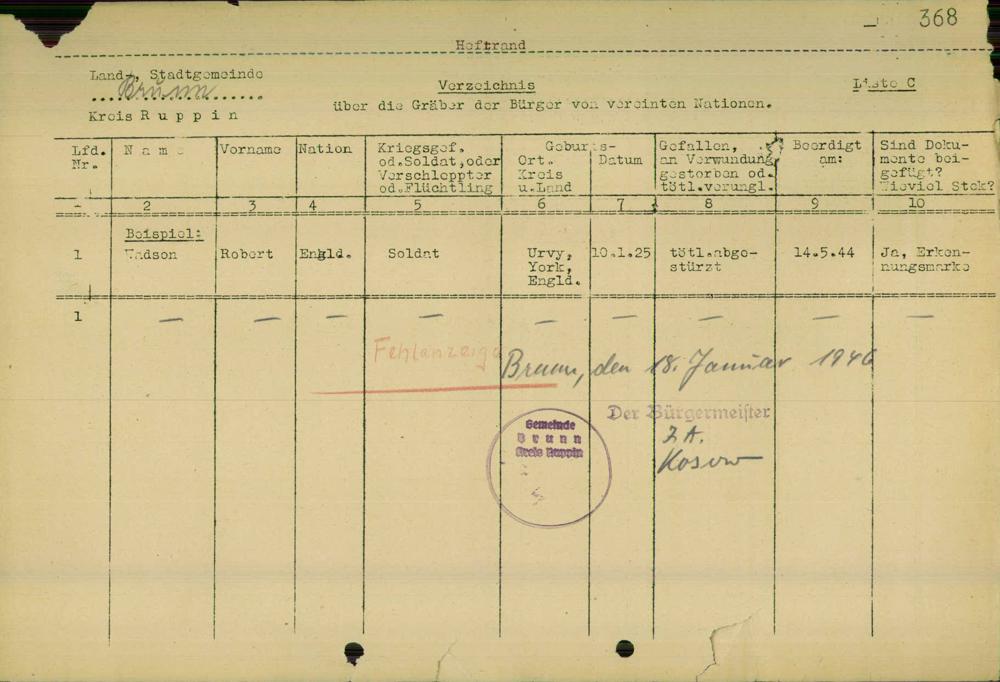 368
Heftrand
Land-, Stadtgemeinde
Brunn
Kreis Ruppin
Verzeichnis
über die Gräber der Bürger von vereinten Nationen.
Liste C
Lfd. Nr. Name Vorname Nation Kriegsgef. od.Soldat,oder Verschleppter od.Flüchtling Geburts- Ort. Kreis u.Land Datum Gefallen, an Verwundung gestorben od. tötl.verungl. Beerdigt am: Sind Doku- mente bei- gefügt? Wieviel Stck?
1 2 3 4 5 6 7 8 9 10
Beispiel:
1 Robert Engld. Soldat Urvy, York, Engld. 10.1.25 tötl.abge- stürzt 14.5.44 Ja, Erken- nungsmarke
1 — — — — — — — — —
Fehlanzeige
Brunn, den 18. Januar 1946
Der Bürgermeister
I.A.
Kosow
Gemeinde
Brunn
Kreis Ruppin